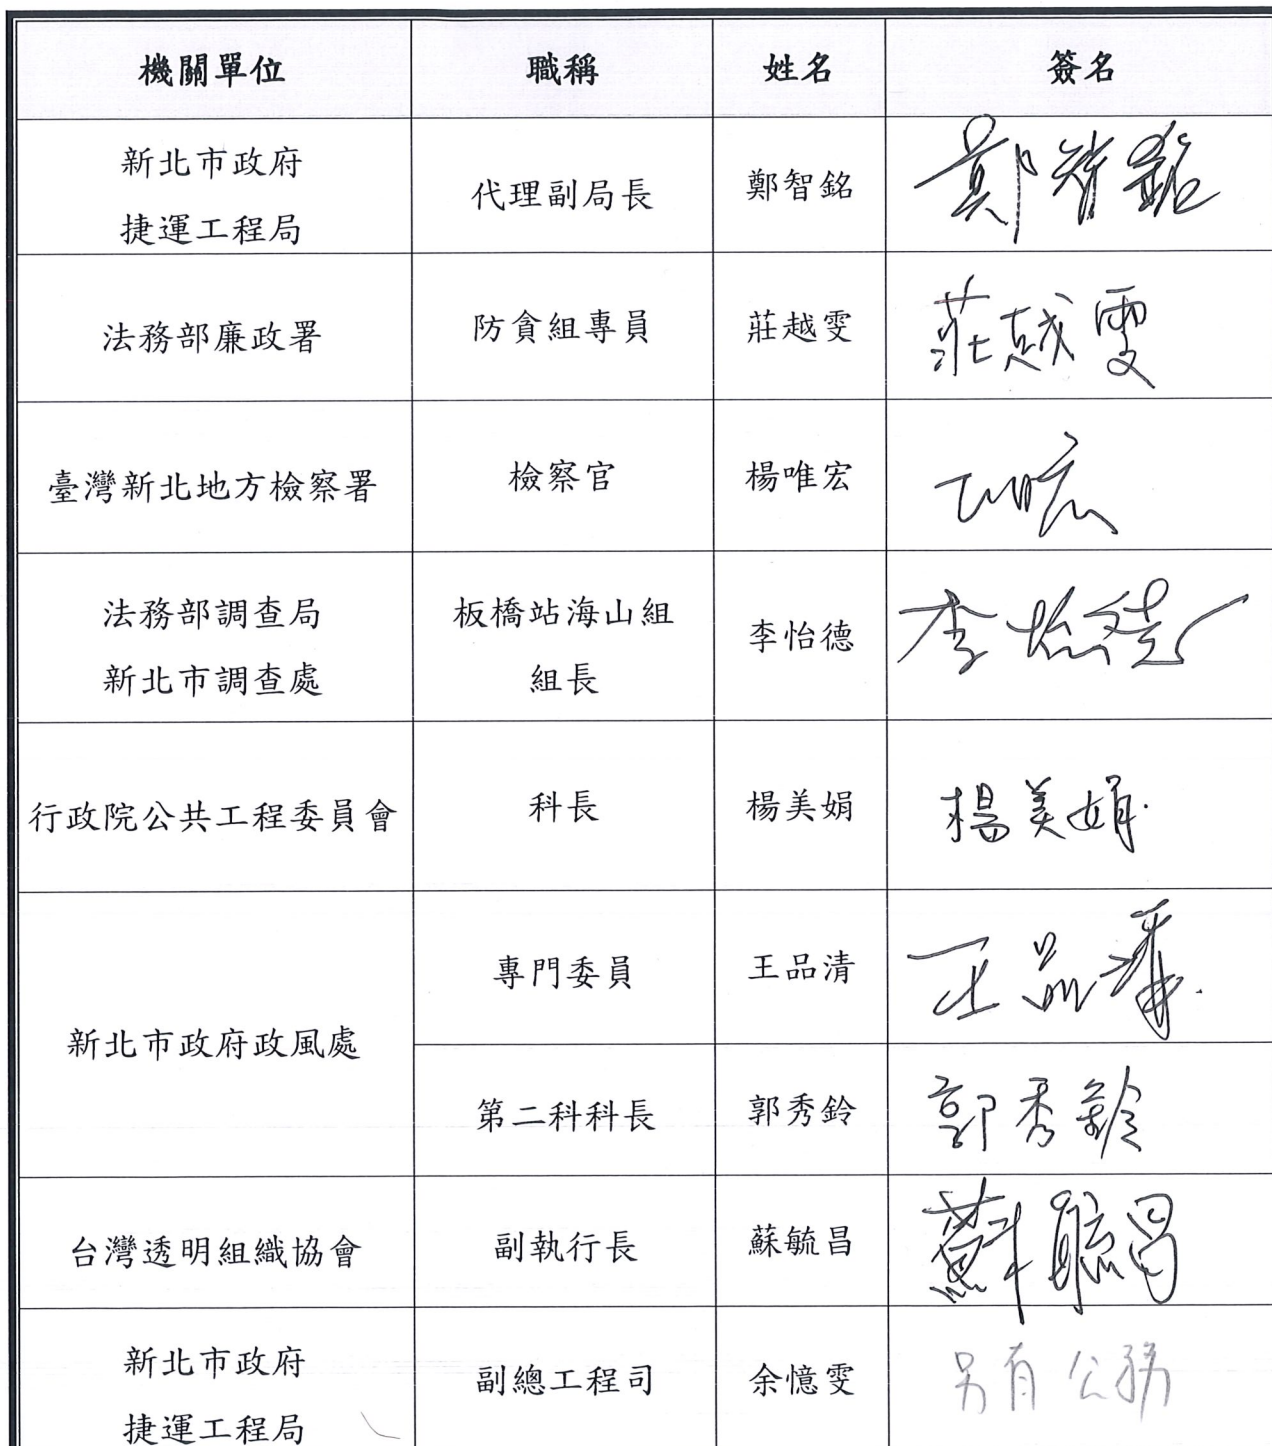 機關單位 職稱 姓名 簽名
新北市政府
捷運工程局 代理副局長 鄭智銘 鄭智銘
法務部廉政署 防貪組專員 莊越雯 莊越雯
臺灣新北地方檢察署 檢察官 楊唯宏
法務部調查局
新北市調查處 板橋站海山組
組長 李怡德 李怡德
行政院公共工程委員會 科長 楊美娟 楊美娟
新北市政府政風處 專門委員 王品清 王品清
第二科科長 郭秀鈴 郭秀鈴
台灣透明組織協會 副執行長 蘇毓昌 蘇毓昌
新北市政府
捷運工程局 副總工程司 余憶雯 另有公務